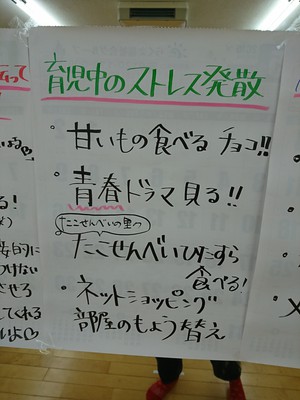 育児中のストレス発散
・甘いもの食べる チョコ!!
・青春ドラマ見る!!
たこせんべいの里の
・たこせんべいひたすら
食べる!
・ネットショッピング
部屋のもよう替え